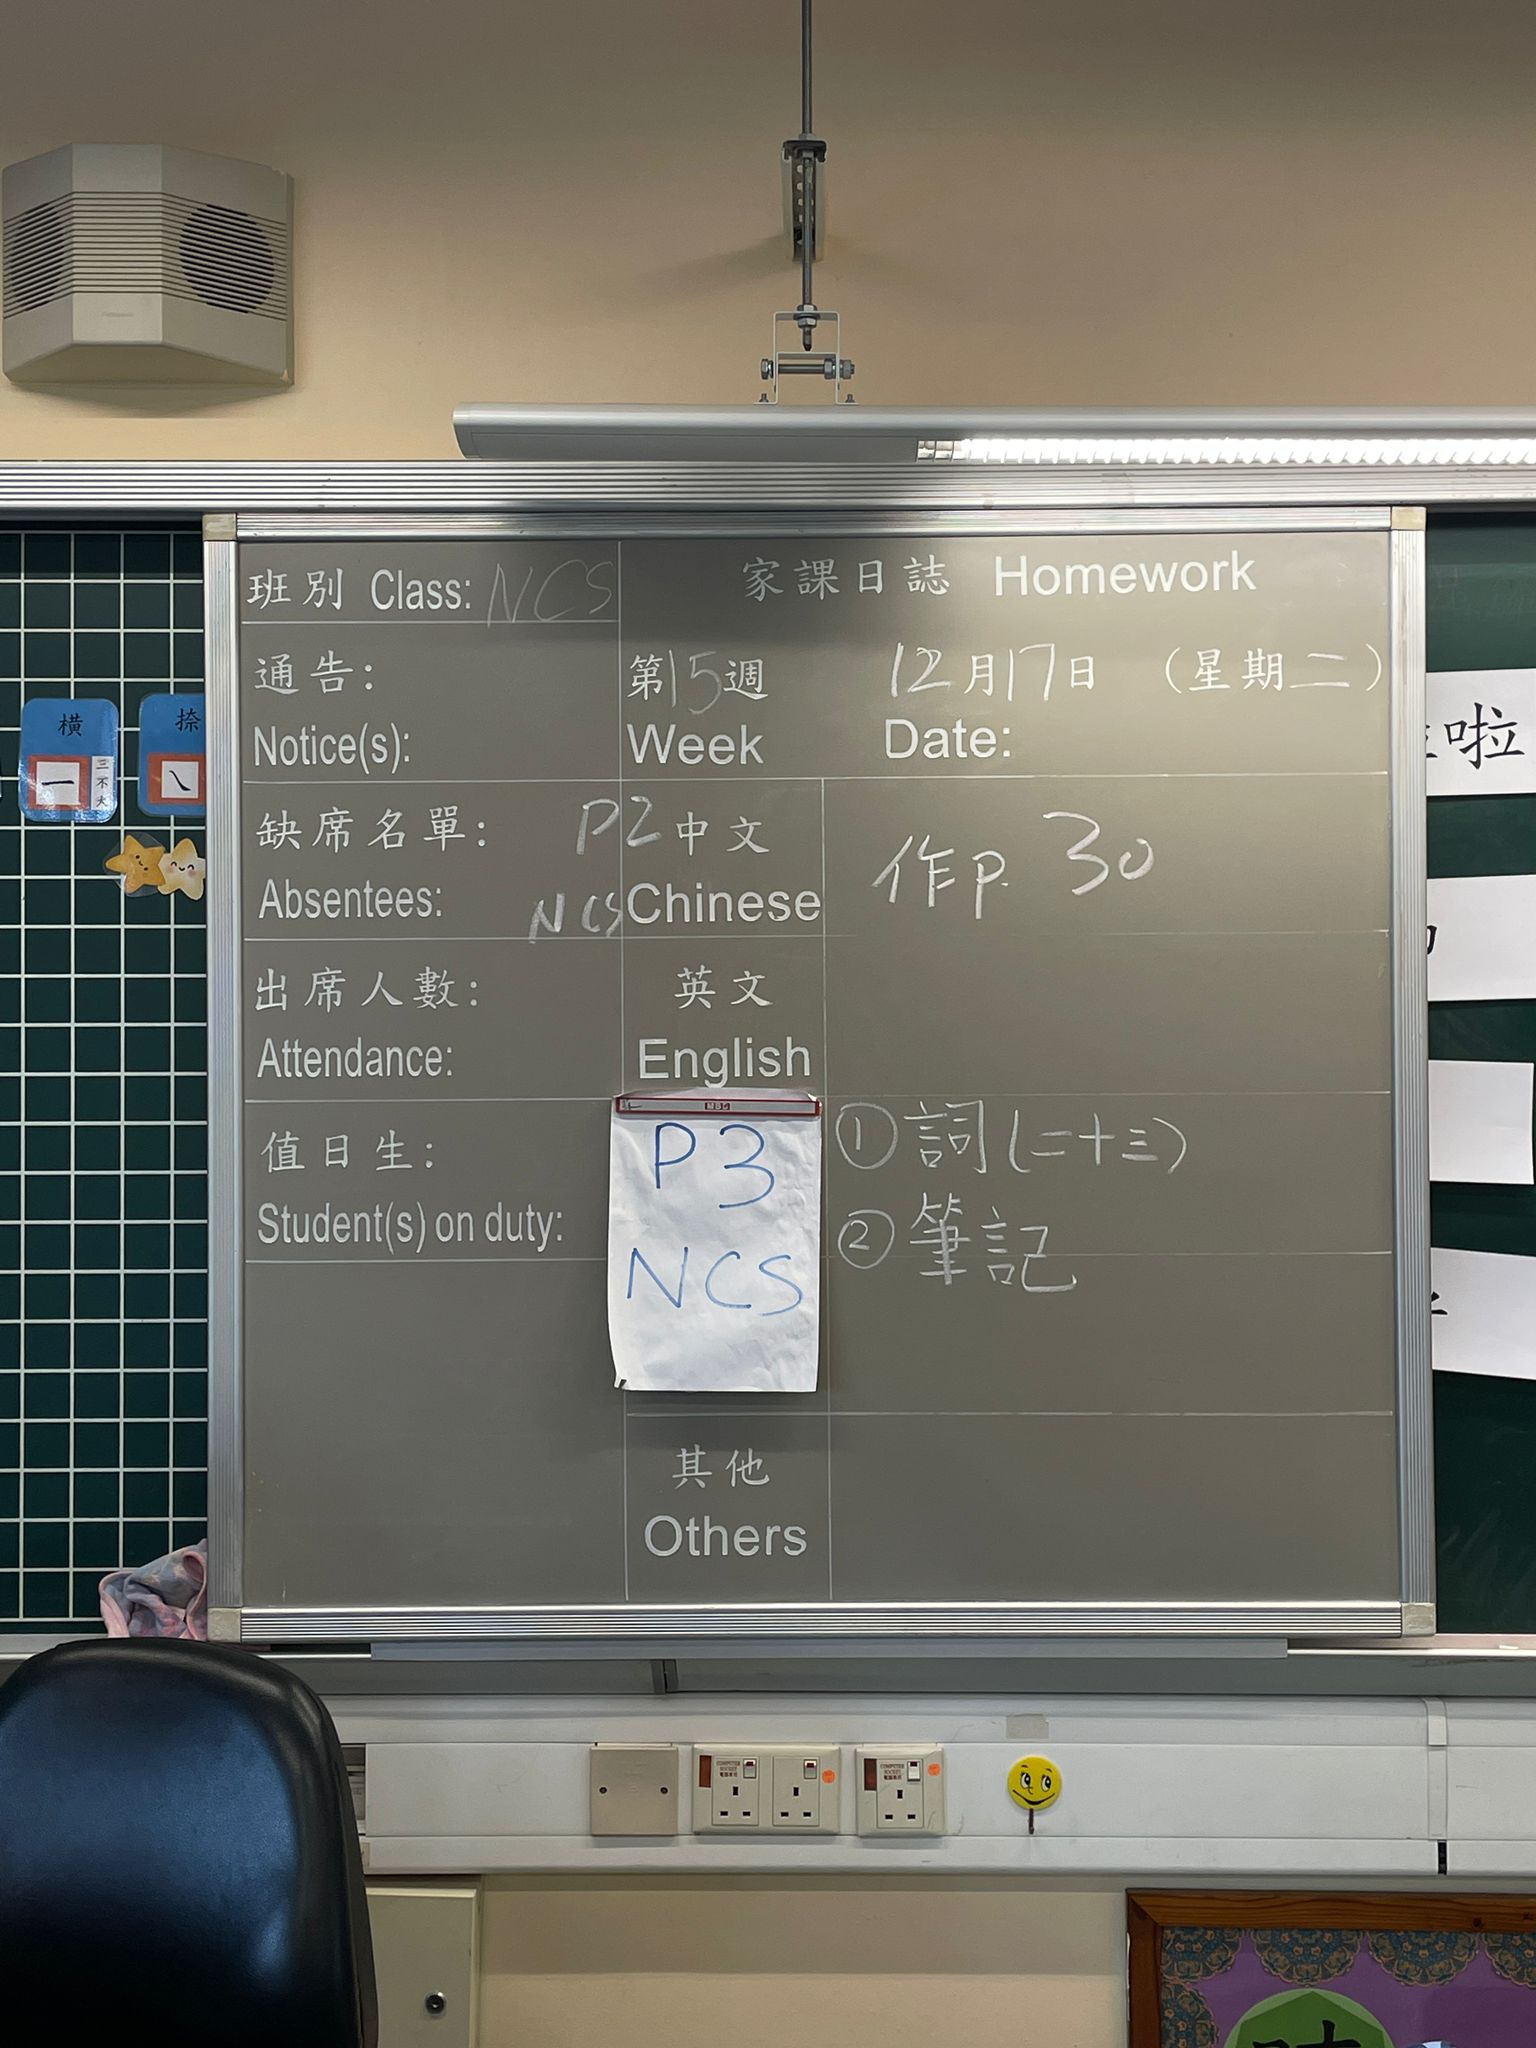 班別 Class: NCS
家課日誌 Homework
通告:
Notice(s):
第15週 12月17日 (星期二)
Week Date:
缺席名單:
Absentees:
P2 中文
NCS Chinese
作p. 30
出席人數:
Attendance:
英文
English
值日生:
Student(s) on duty:
P3
NCS
① 詞(二十三)
② 筆記
其他
Others
橫
一
三
不
大
捺
啦
COMPUTER SOCKET
電腦專用
COMPUTER SOCKET
電腦專用